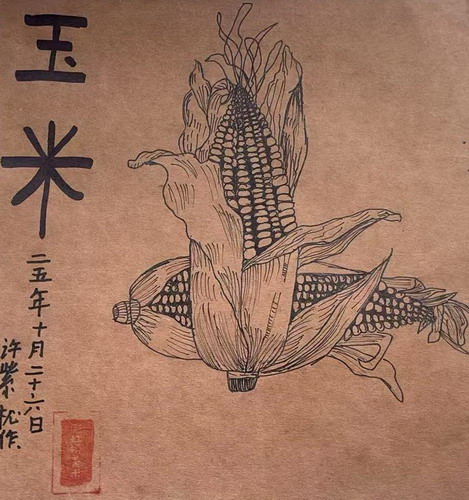 玉米
二五年十月二十六日
许紫松作